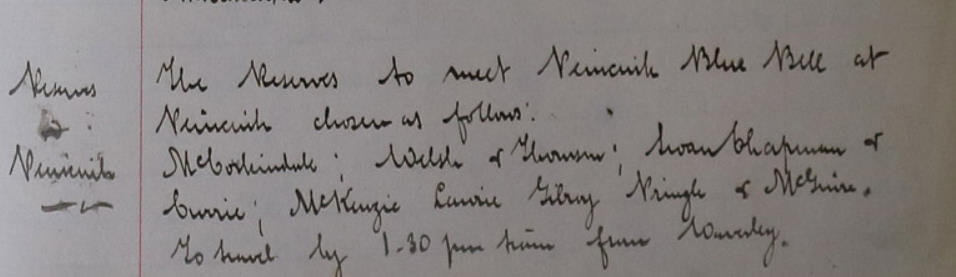 Reserves
v
Penicuik
The Reserves to meet Penicuik Blue Bell at
Penicuik chosen as follows:
McCorkindale; Welsh & Thomson; Swan Chapman &
Currie; McKenzie Laurie Gilroy Pringle & McGuire.
To travel by 1-30 pm train from Waverley.